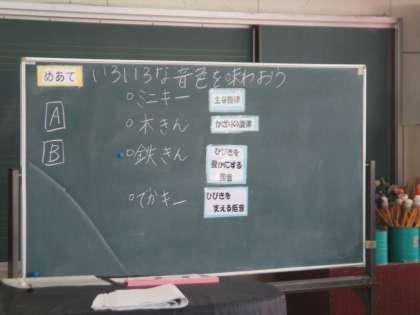 めあて いろいろな音色を味わおう
A
B
○ミニキー 主な旋律
○木きん かざりの旋律
○鉄きん ひびきを
豊かにする
和音
○でかキー ひびきを
支える低音